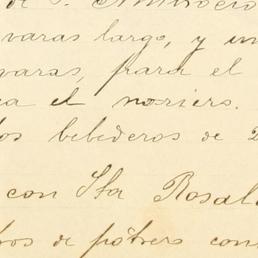 de S. Ambrocio
varas largo, y un
varas, para el
el noriero.
los bebederos de 2
con Sta Rosal
de potrero con